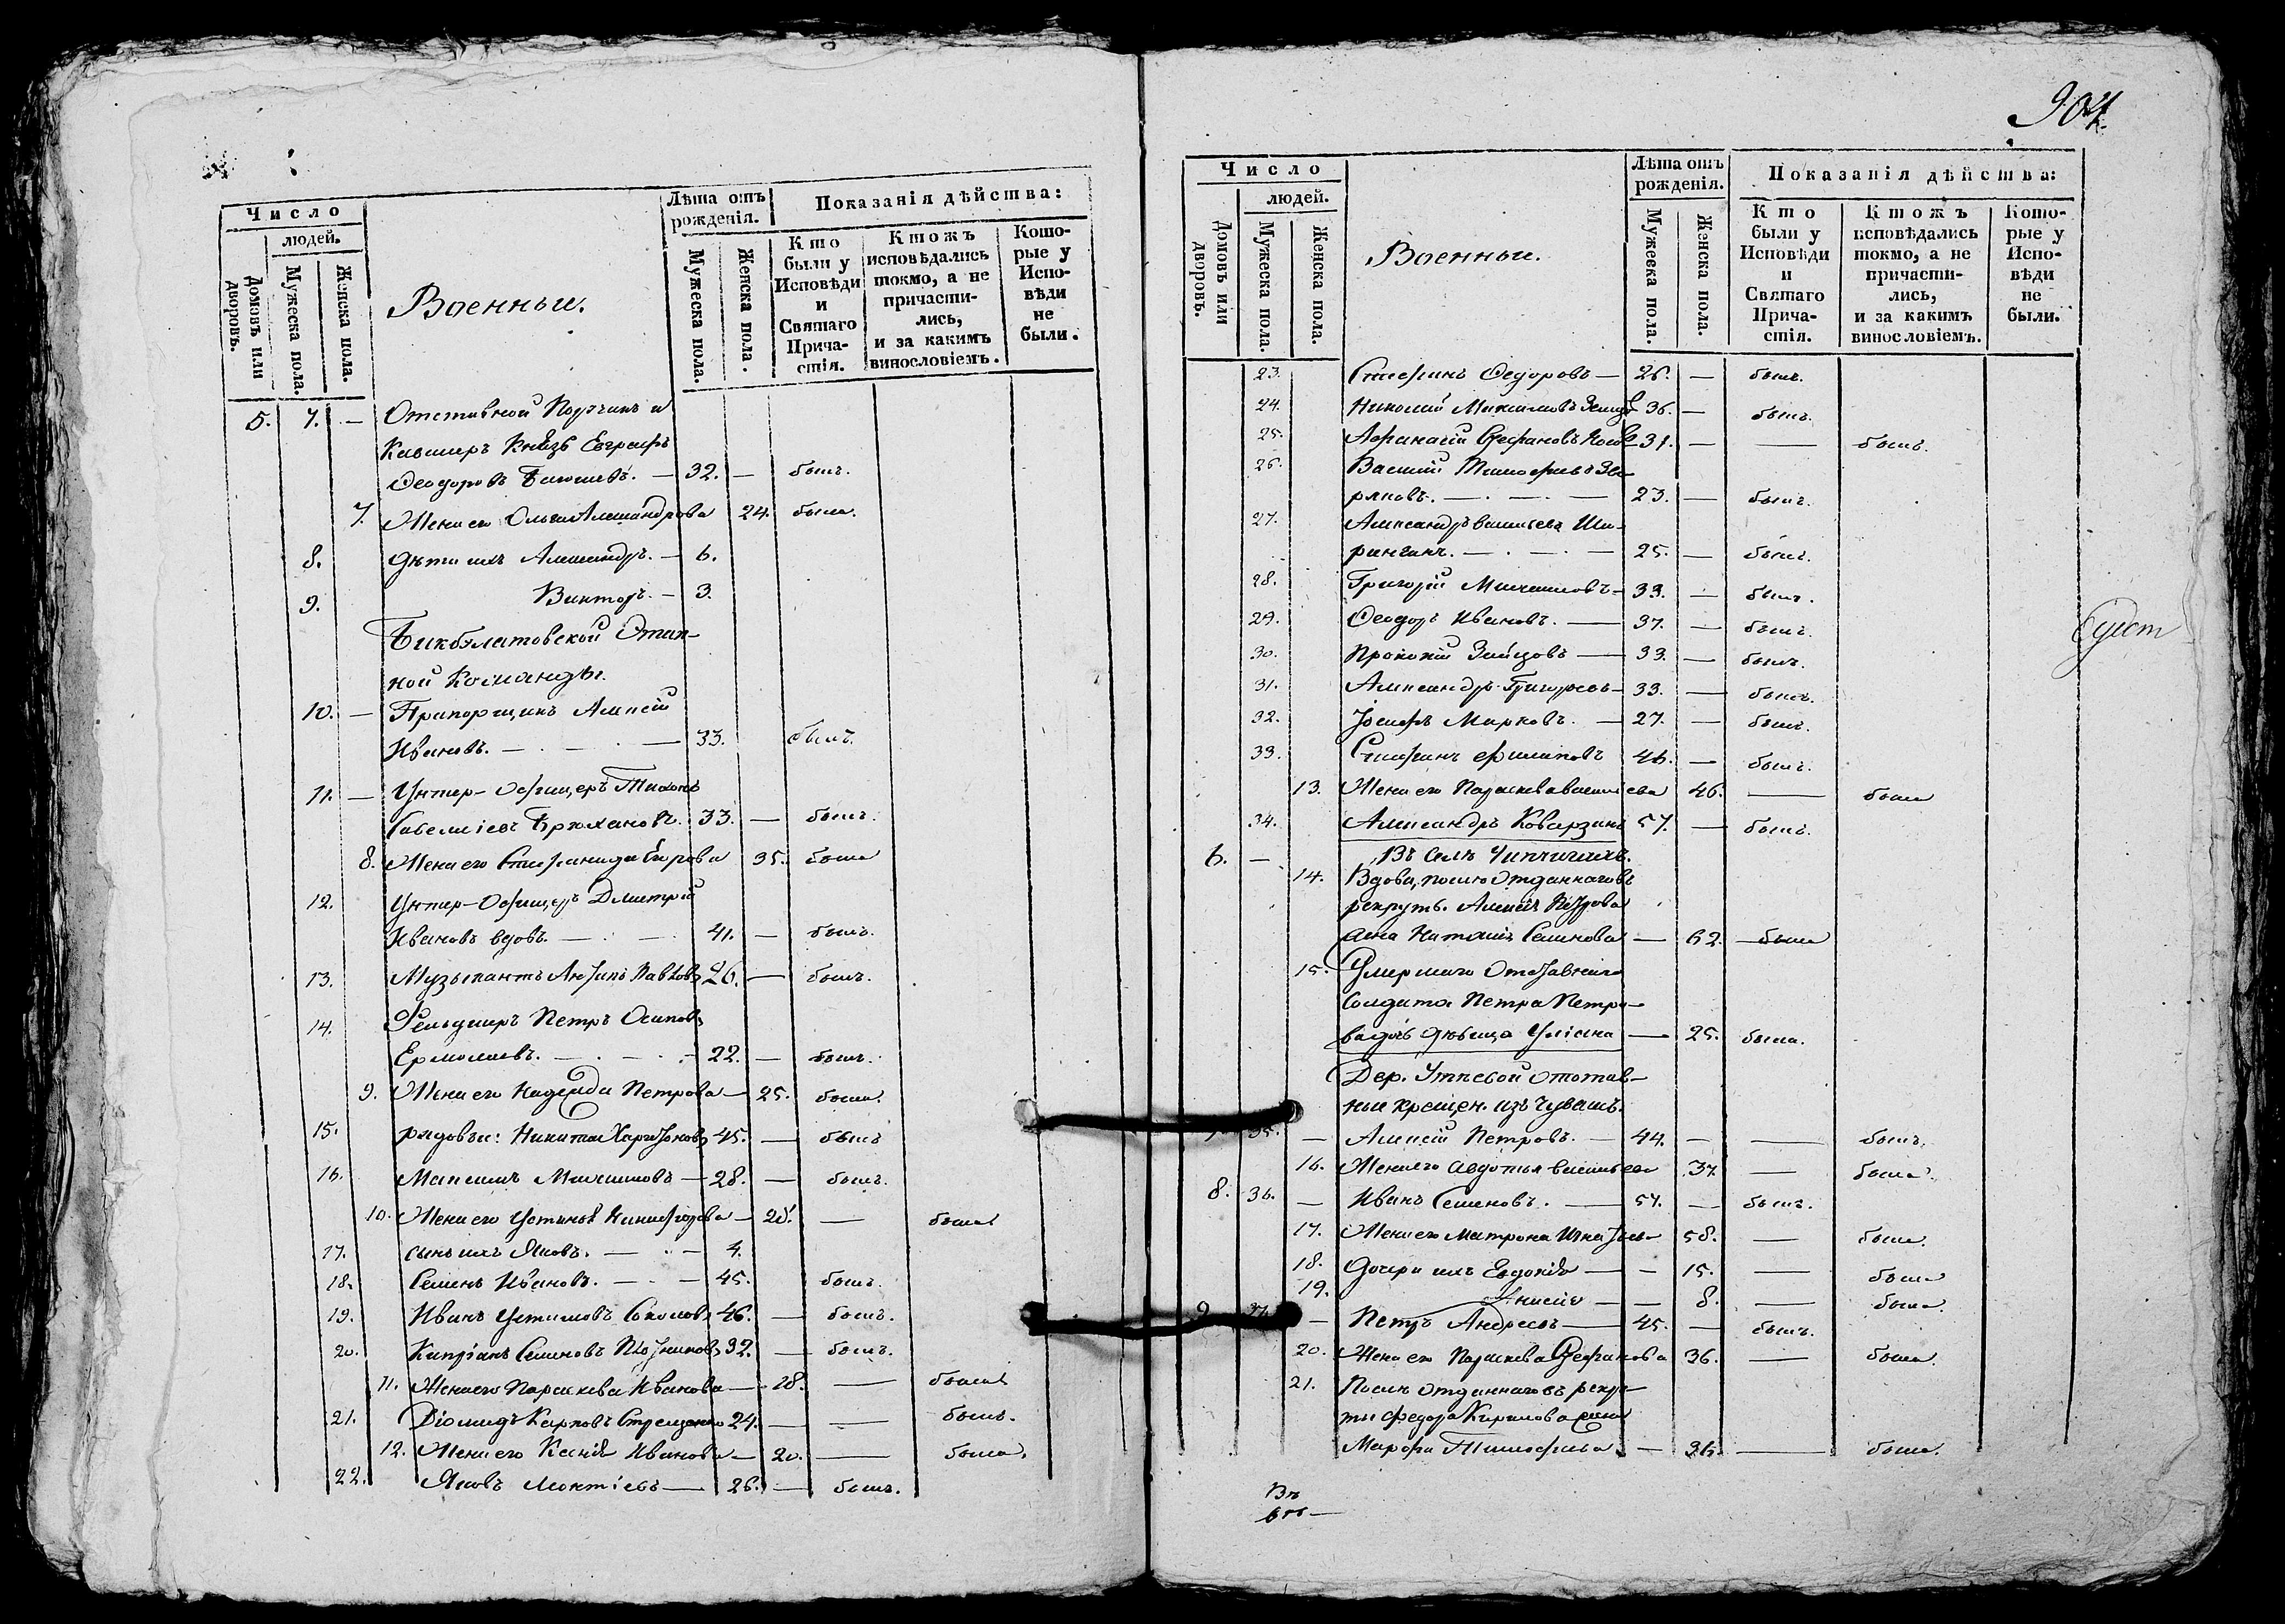 904.
Число
людей.
Домовъ или дворовъ.
Мужеска пола.
Женска пола.
Военныи.
Лѣта отъ
рожденія.
Мужеска пола.
Женска пола.
Показанія дѣйства:
Кто
были у
Исповѣди
и
Святаго
Прича-
стія.
Ктожъ
исповѣдались
токмо, а не
причасти-
лись,
и за какимъ
винословіемъ.
Кото-
рые у
Испо-
вѣди
не
были.
5. 7. — Отставной Поручикъ и
Князь Евграфъ
Феодоровъ — 32. — былъ.
7. Жена его Ольга Александрова 24. была.
8. дѣти ихъ Александръ. — 6.
9. Викторъ. — 3.
Этап-
ной Команды.
10. — Прапорщикъ Алексѣй
Ивановъ. — 33. былъ.
11. — Унтер-Офицеръ Тихонъ
Савеліевъ Брюхановъ. 33. — былъ.
8. Жена его Стефанида Егорова 35. была
12. Унтер-Офицеръ Димитрій
Ивановъ вдовъ. — 41. — былъ.
13. Музыкантъ 26. — былъ.
14. Фельдшеръ Петръ Осиповъ
Ермолаевъ. — 22. — былъ.
9. Жена его Надежда Петрова — 25. была.
15. рядовые: Никита Харитоновъ 45. — былъ
16. Максимъ — 28. — былъ.
10. Жена его Устинья Никифорова — 28. — была
17. сынъ ихъ Яковъ. — 4.
18. Семенъ Ивановъ. — 45. былъ.
19. Иванъ Устимовъ Соколовъ 46. — былъ.
20. Кипріанъ Семеновъ 32. — былъ.
11. Жена его Параскева Иванова — 28. — была
21. Діомидъ Карповъ 24. — — былъ.
12. Жена его Ксенія Иванова — 20. — была.
22. Яковъ Леонтіевъ — 26. — былъ.
Число
людей.
Домовъ или дворовъ.
Мужеска пола.
Женска пола.
Военныи.
Лѣта отъ
рожденія.
Мужеска пола.
Женска пола.
Показанія дѣйства:
Кто
были у
Исповѣди
и
Святаго
Прича-
стія.
Ктожъ
исповѣдались
токмо, а не
причасти-
лись,
и за какимъ
винословіемъ.
Кото-
рые у
Испо-
вѣди
не
были.
23. Стефанъ Федоровъ — 26. — былъ.
24. Николай 36. — былъ.
25. Афанасій Стефановъ 31. — — былъ.
26. Василій Тимофеевъ
23. — былъ.
27. Александръ Васильевъ Ши-
25. — былъ.
28. Григорій — 33. — былъ.
29. Феодоръ Ивановъ. — 37. — былъ.
30. Прокопій Зайцовъ — 33. — былъ.
31. Александръ Григорьевъ — 33. — былъ.
32. Іосифъ Марковъ. — 27. — былъ.
33. Стефанъ Филиповъ 46. — былъ.
13. Жена его Параскева Васильева 46. — была
34. Александръ Коварзинъ 57. — былъ.
6. — Въ Селѣ
14. Вдовы, послѣ отданнаго въ
рекруты. Алексѣя Петрова
жена Семенова — 62. — была
15. Умершаго Отставнаго
Солдата Петра Петро-
ва дочь дѣвица Уліана — 25. была.
Дер. Отстав-
ные крещен. изъ Чувашъ.
35. — Алексѣй Петровъ. — 44. — — былъ.
16. Жена его Авдотья Васильева 37. — была.
8. 36. — Иванъ Семеновъ. — 57. — былъ.
17. Жена его Матрона 58. — была.
18. Дочери ихъ Евдокія — — 15. — была
19. Анисія — — 8. — была.
9. 37. — Петръ Андреевъ — 45. — былъ.
20. Жена его Параскева Стефанова 36. — была.
21. Послѣ отданнаго въ рекру-
ты Федора Кирилова жена
Марфа Тимофѣева. — 36. — была.